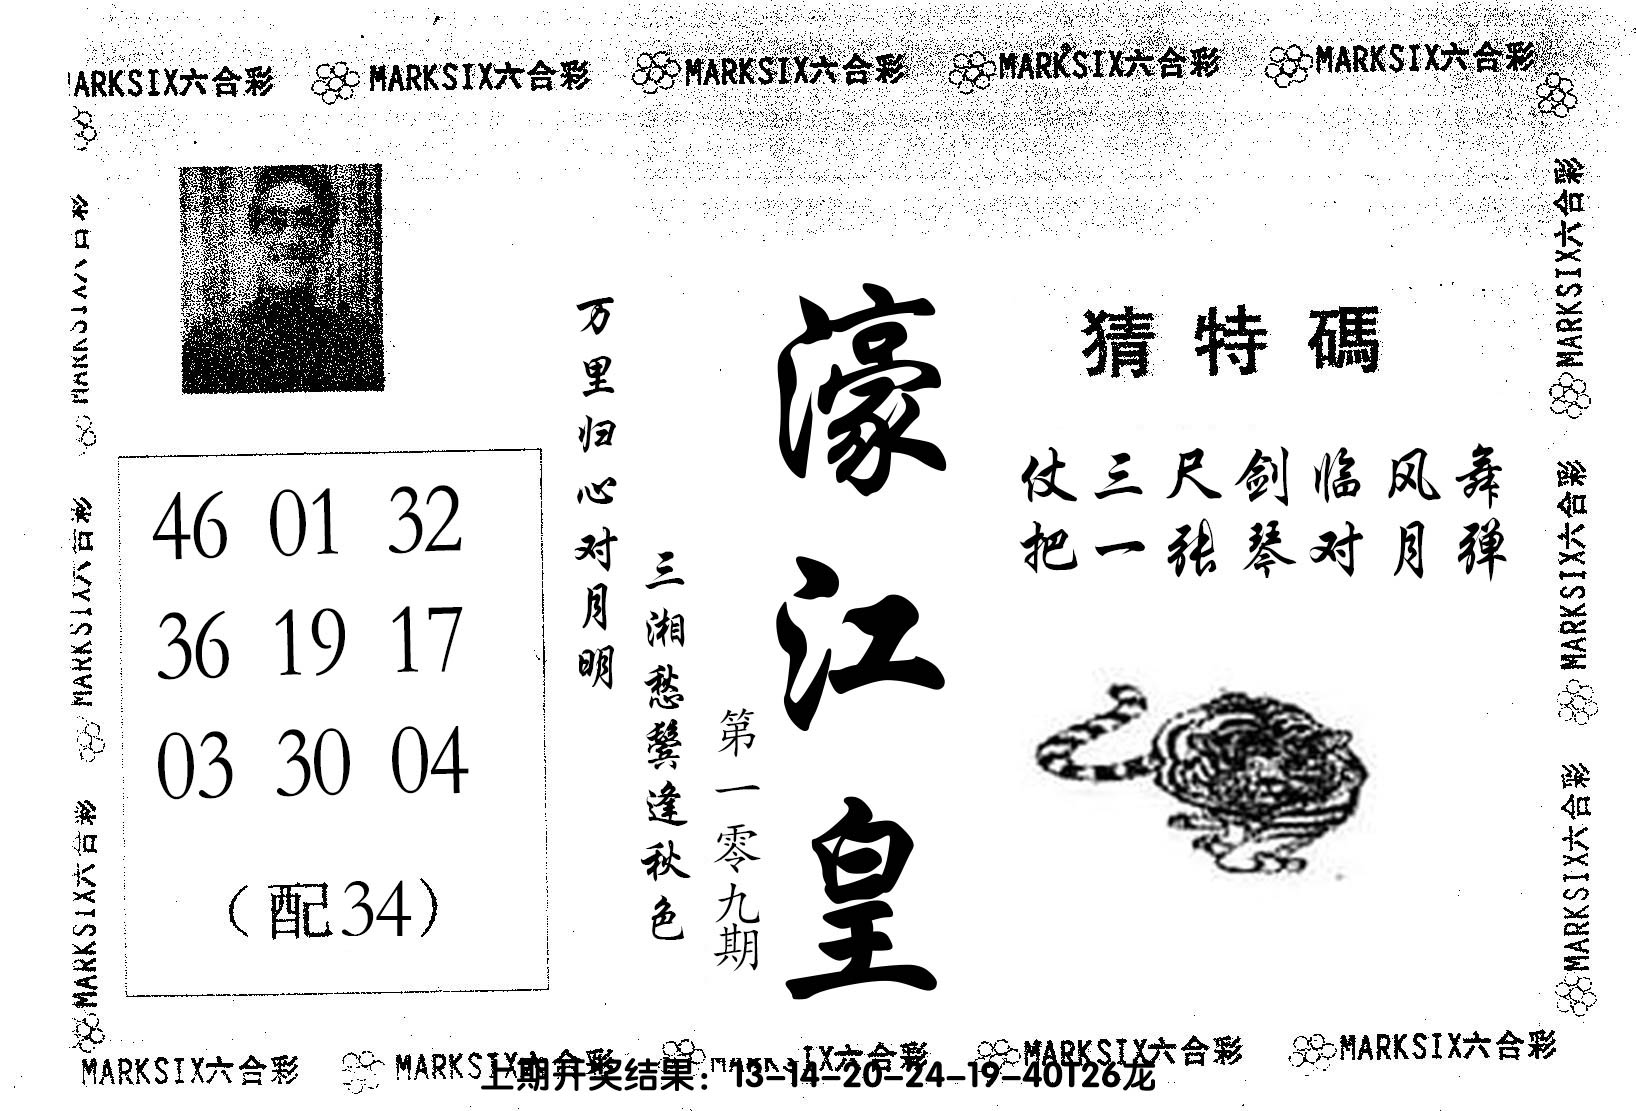 MARKSIX六合彩 MARKSIX六合彩 MARKSIX六合彩 MARKSIX六合彩 MARKSIX六合彩
猜特碼
仗三尺剑临风舞
把一张琴对月弹
濠江皇
第一零九期
三湘愁鬓逢秋色
万里归心对月明
46 01 32
36 19 17
03 30 04
（配34）
MARKSIX六合彩
MARKSIX六合彩
MARKSIX六合彩
MARKSIX六合彩
MARKSIX六合彩
MARKSIX六合彩
MARKSIX六合彩 MARKSIX六合彩 MARKSIX六合彩 MARKSIX六合彩 MARKSIX六合彩
上期开奖结果：13-14-20-24-19-40T26龙